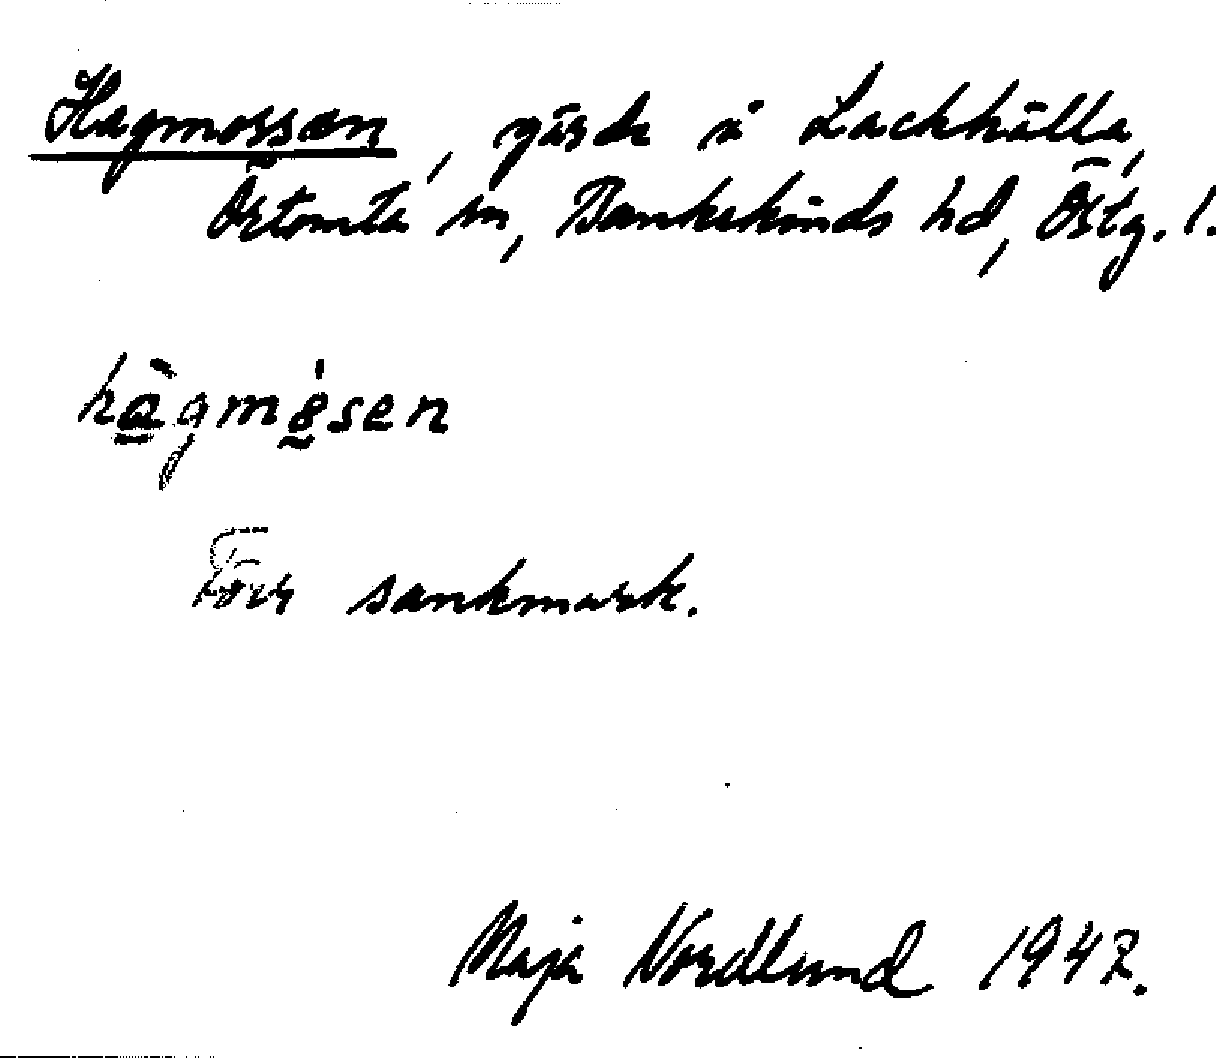 Hagmossen, gärde å Lackkälla,
Östomta sn, Bankekinds hd, Östg. l.
hàgmósen
Förr sankmark.
Maja Nordlund 1947.